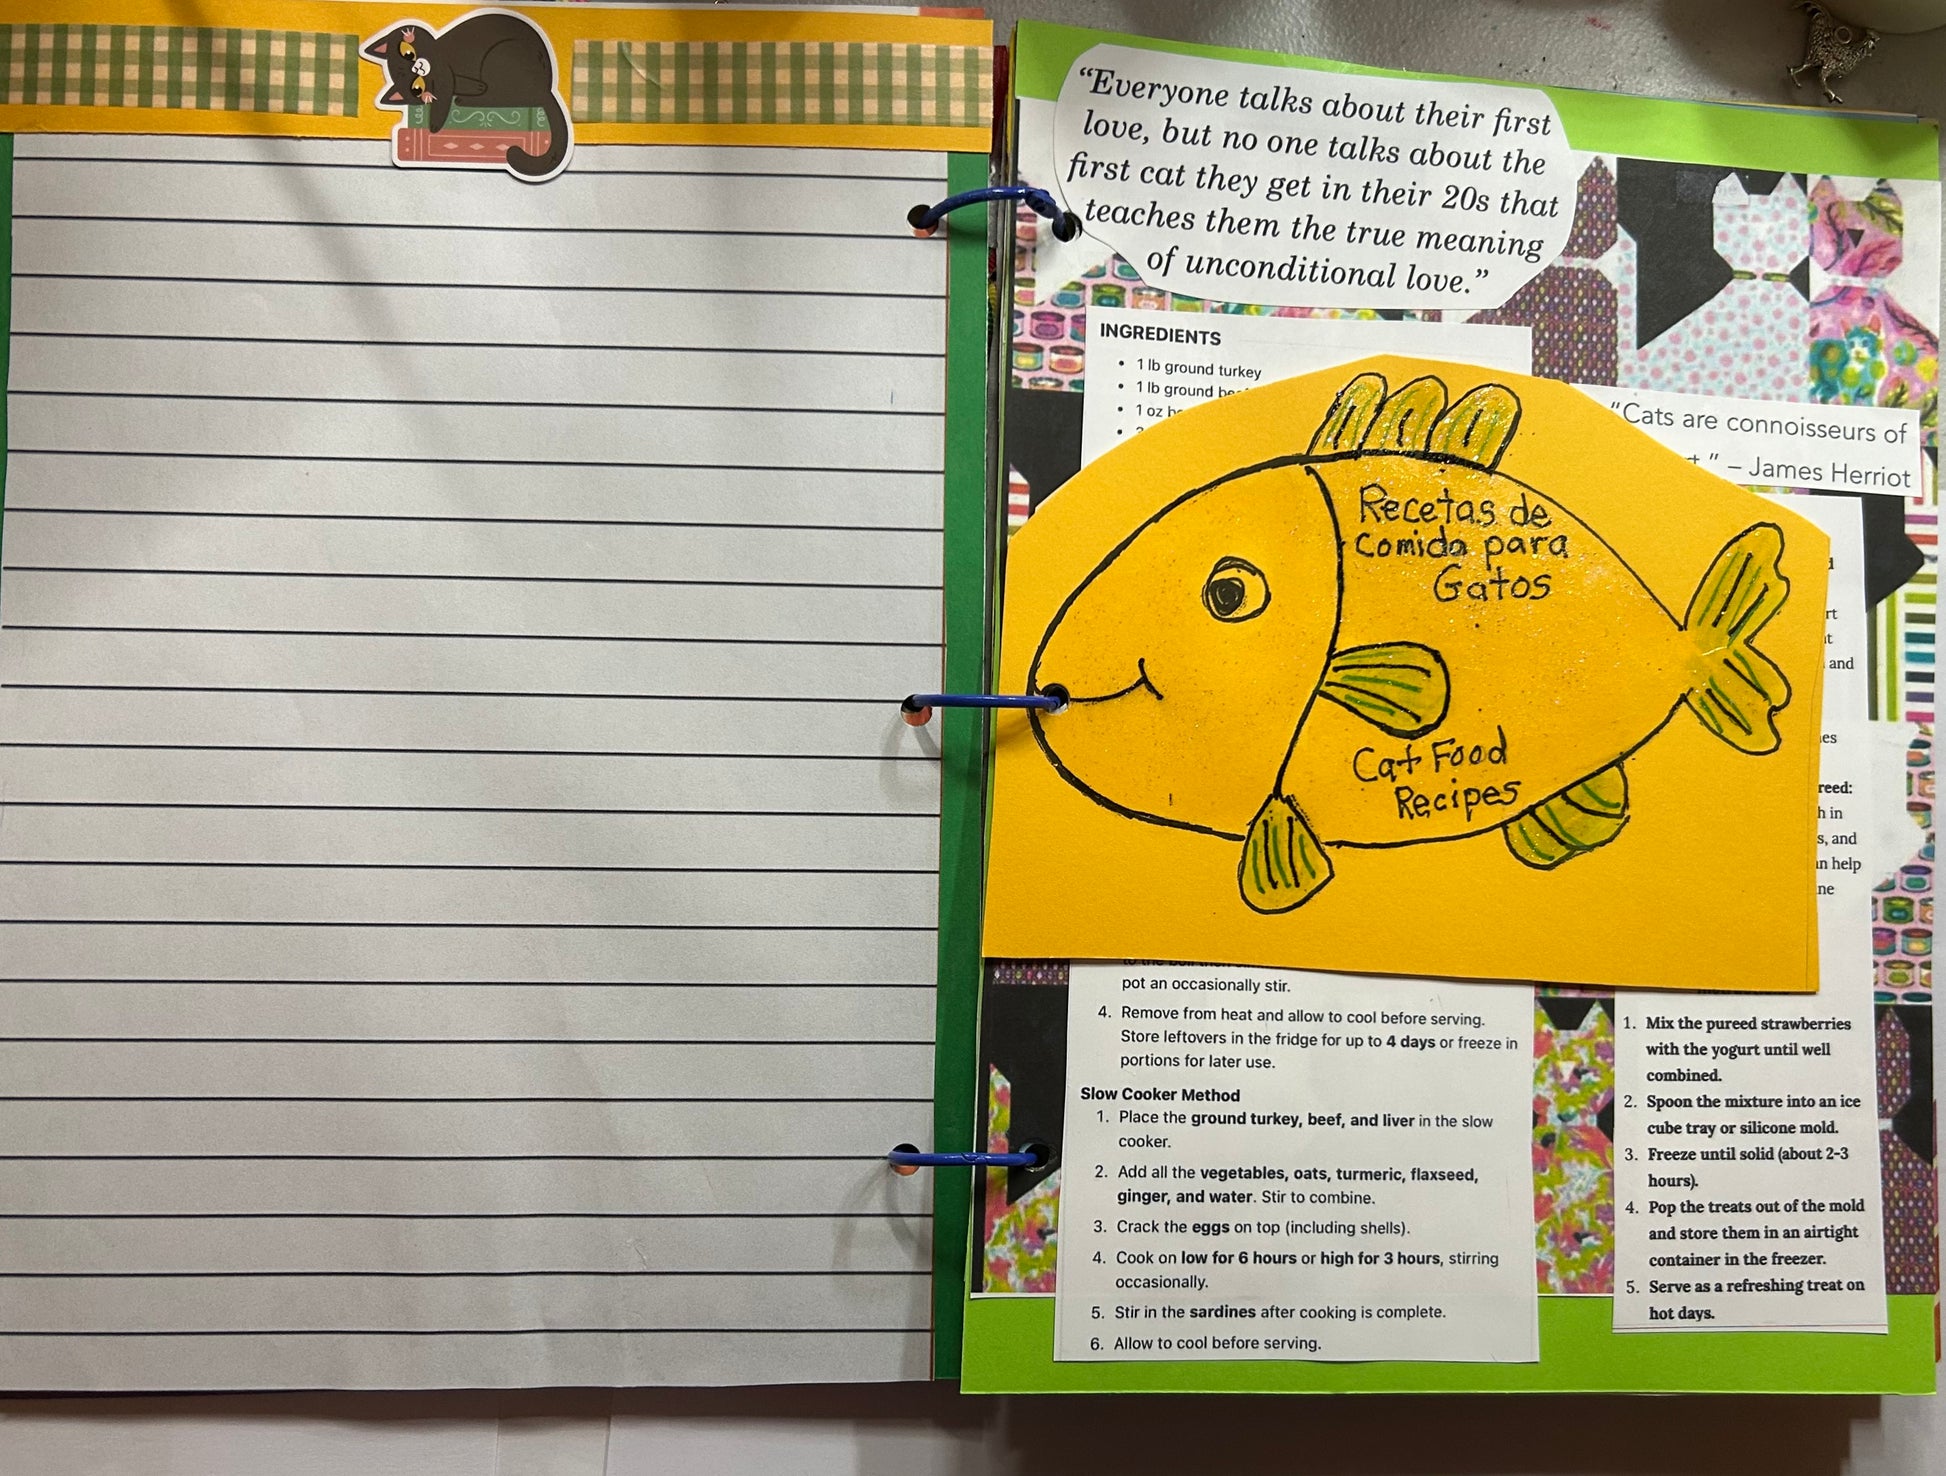 “Everyone talks about their first
love, but no one talks about the
first cat they get in their 20s that
teaches them the true meaning
of unconditional love.”
INGREDIENTS
• 1 lb ground turkey
• 1 lb ground
• 1 oz
“Cats are connoisseurs of
” – James Herriot
Recetas de
Comida para
Gatos
Cat Food
Recipes
and
reed:
in
s, and
help
pot an occasionally stir.
4. Remove from heat and allow to cool before serving.
Store leftovers in the fridge for up to 4 days or freeze in
portions for later use.
Slow Cooker Method
1. Place the ground turkey, beef, and liver in the slow
cooker.
2. Add all the vegetables, oats, turmeric, flaxseed,
ginger, and water. Stir to combine.
3. Crack the eggs on top (including shells).
4. Cook on low for 6 hours or high for 3 hours, stirring
occasionally.
5. Stir in the sardines after cooking is complete.
6. Allow to cool before serving.
1. Mix the pureed strawberries
with the yogurt until well
combined.
2. Spoon the mixture into an ice
cube tray or silicone mold.
3. Freeze until solid (about 2-3
hours).
4. Pop the treats out of the mold
and store them in an airtight
container in the freezer.
5. Serve as a refreshing treat on
hot days.